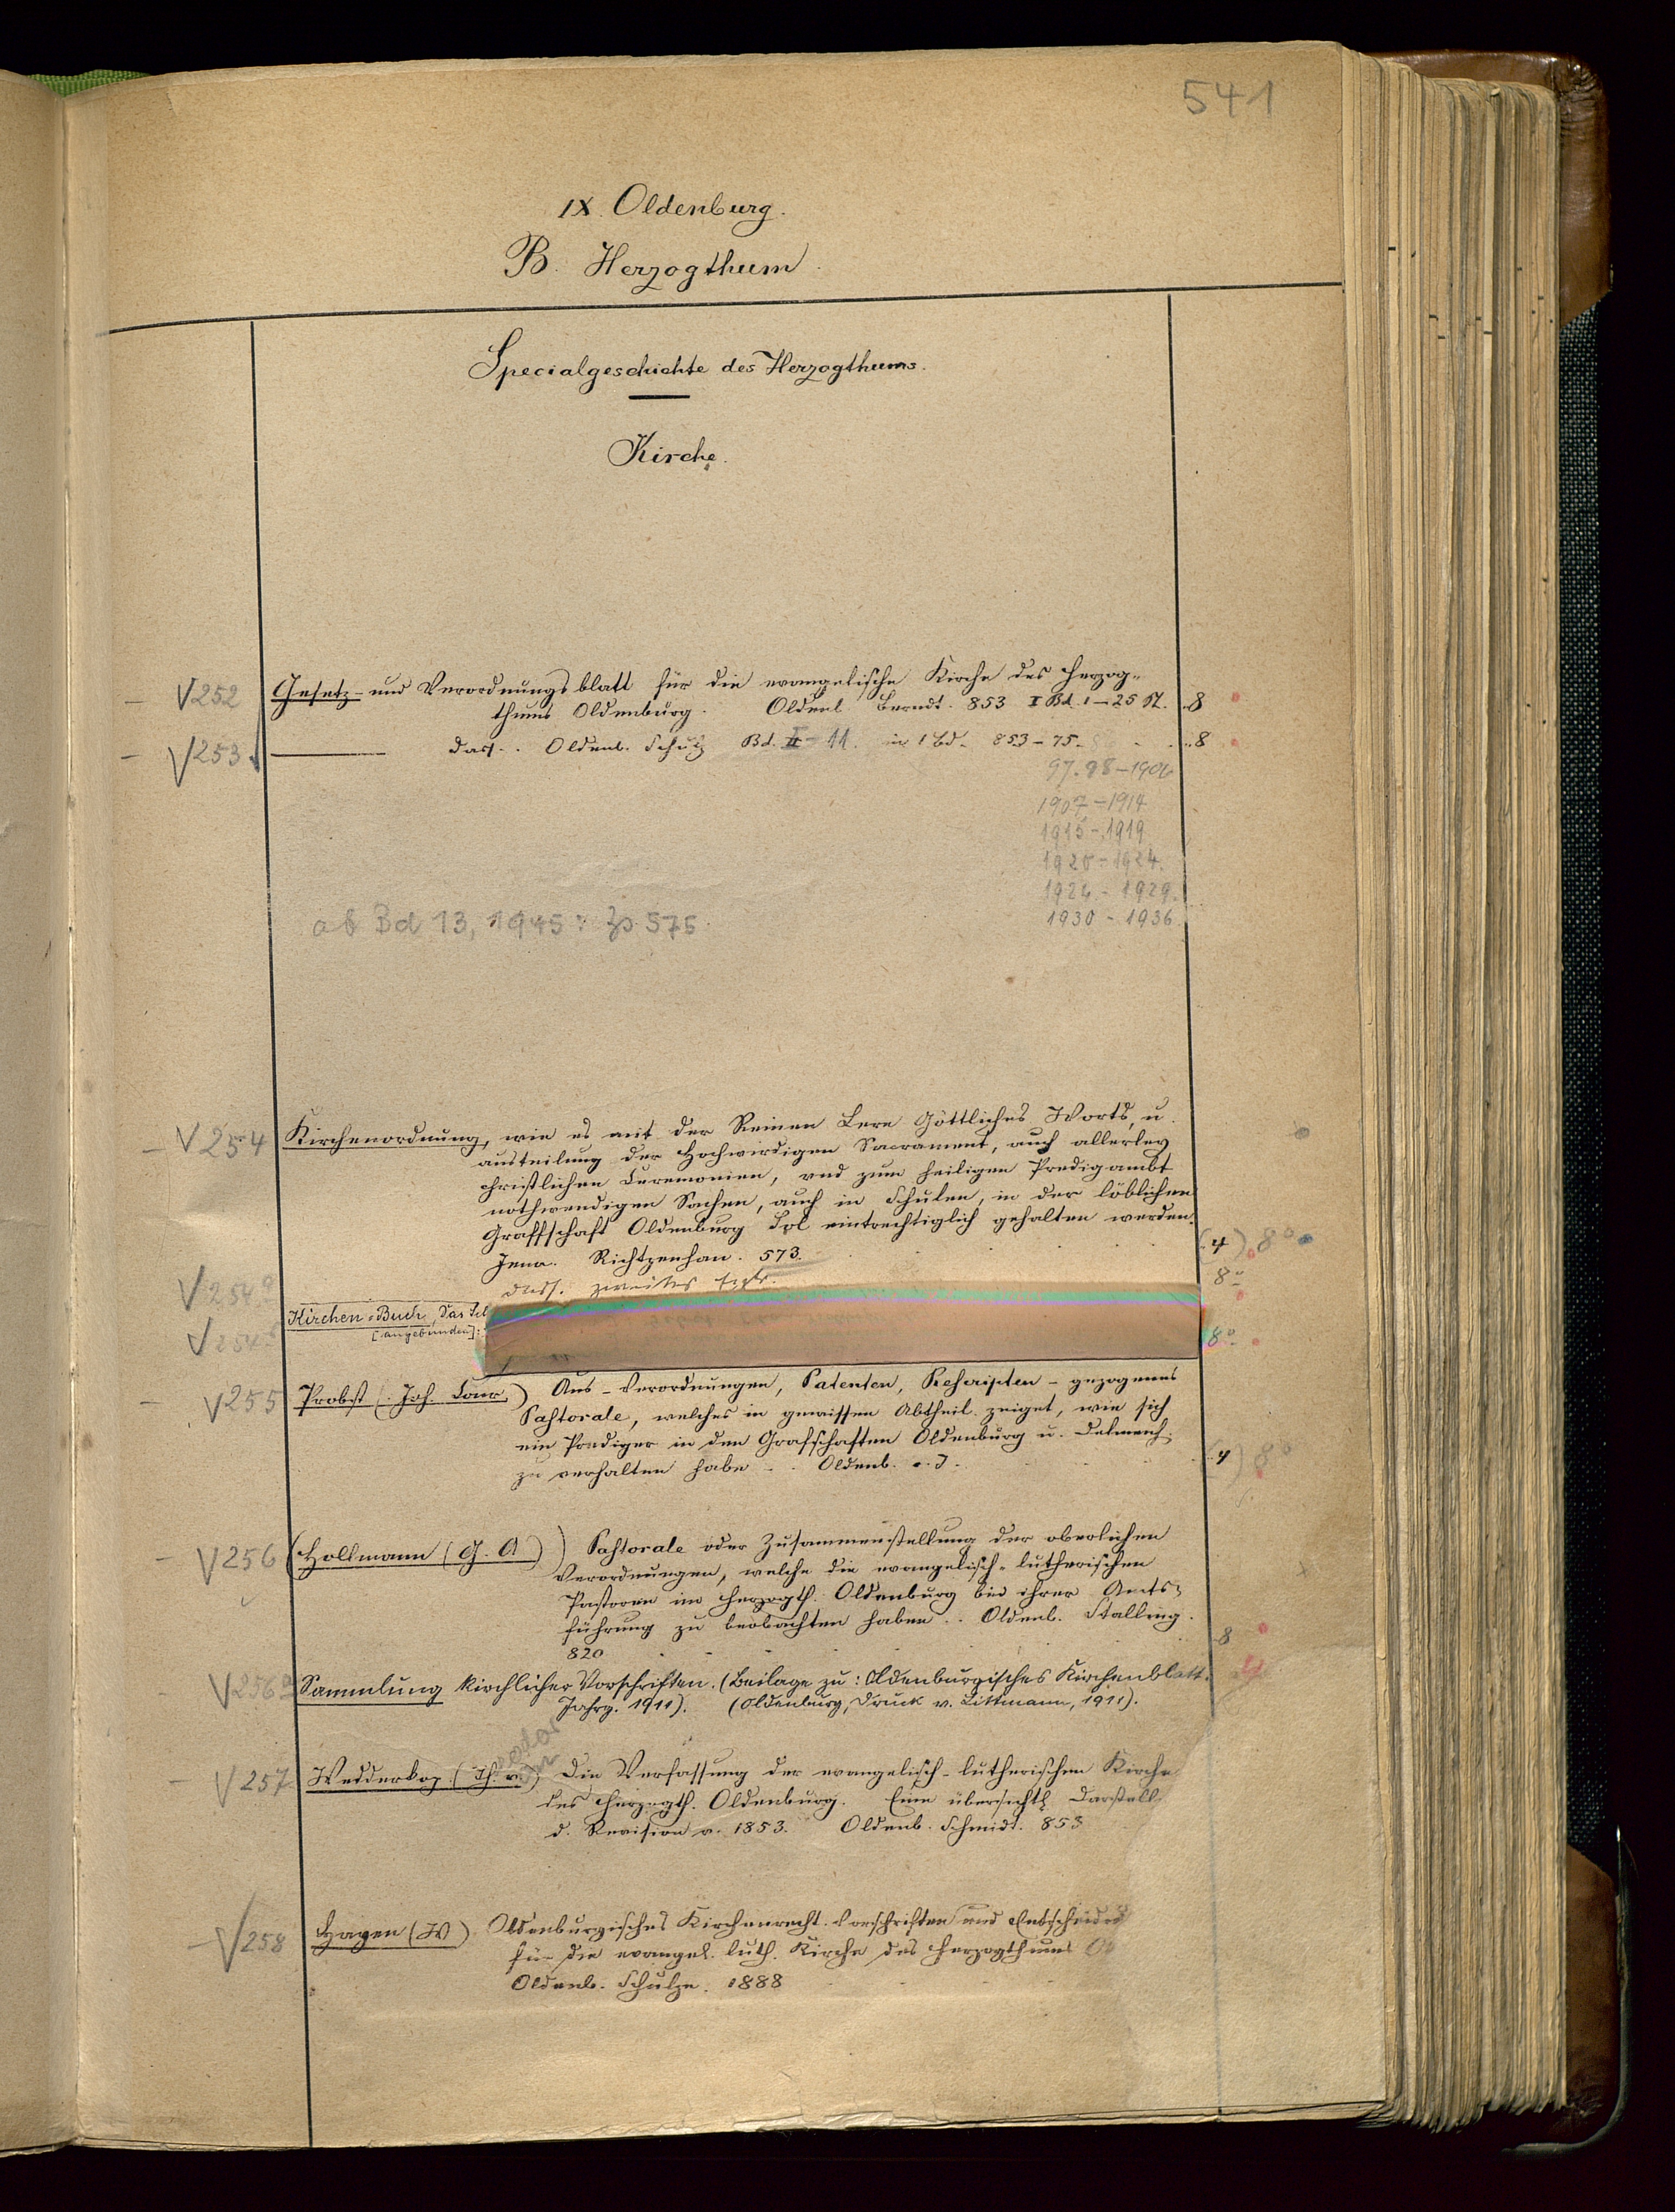 541
IX. Oldenburg.
B. Herzogthum
Specialgeschichte des Herzogthums.
Kirche.
V 252 Gesetz- und Verordnungsblatt für die evangelische Kirche des Herzog-
thums Oldenburg. Oldenb Berndt. 853 I Bd. 1-25 St. 8
V 253 dass. Oldenb. Schulz Bd. II-11. in 1 Bd. 853-75. 8
97.98-1906
1907-1914
1915-1919
1920-1924.
1924-1929.
1930-1936
ab Bd 13, 1945: Zs 575.
V 254 Kirchenordnung, wie es mit der Reinen Lere Göttliches Worts, u.
austeilung der Hochwirdigen Sacrament, auch allerley
christlichen Ceremonien, vnd zum heiligen Predigambt
nothwendigen Sachen, auch in Schulen, in der löblichen
Graffschaft Oldenburg Sol eintrechtiglich gehalten werden.
Jena. Richtzenhan. 573. (4) 8°
V 254a dass. zweites Expl. 8°
Kirchen-Buch, Das
V 254 [angebunden]: 8°
V 255 Probst (Joh. Conr.) Aus-Verordnungen, Patenten, Rescripten-gezogenes
Pastorale, welches in gewissen Abtheil. zeiget, wie sich
ein Prediger in den Grafschaften Oldenburg u. Delmenh.
zu verhalten habe .. Oldenb. o.J. (4) 8°
V 256 (Hollmann (G. A)) Pastorale oder Zusammenstellung der oberlichen
Verordnungen, welche die evangelisch-lutherischen
Pastoren im Herzogth. Oldenburg bei ihrer Amts-
führung zu beobachten haben .. Oldenb. Stalling.
820 8
V 256a Sammlung kirchlicher Vorschriften. (Beilage zu: Oldenburgisches Kirchenblatt.
Jahrg. 1911). (Oldenburg, Druck v. Littmann, 1911).
V 257 Wedderkop (Th. v.) Die Verfassung der evangelisch-lutherischen Kirche
des Herzogth. Oldenburg. Eine übersichtl. Darstell.
d. Revision v. 1853. Oldenb. Schmidt. 853
V 258 Hayen (W) Oldenburgisches Kirchenrecht. Vorschriften und
für die evangel. luth. Kirche des Herzogthums
Oldenb. Schulze. 1888